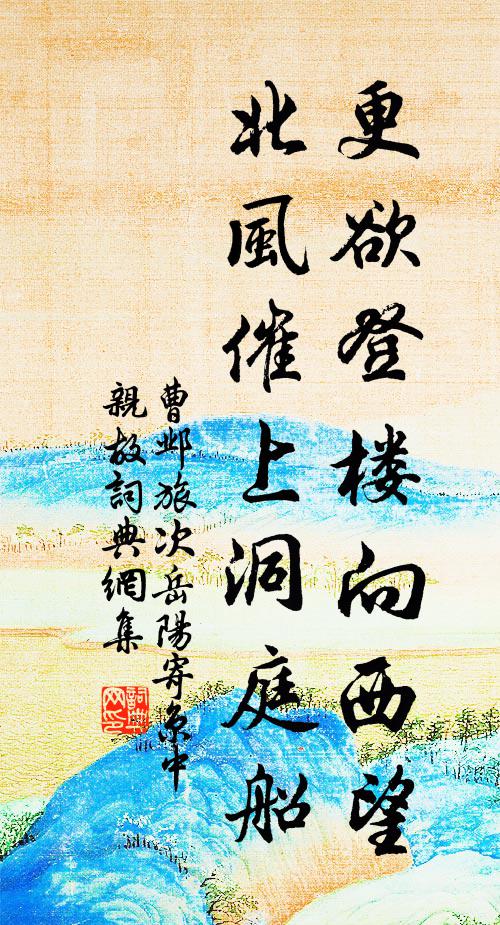 更欲登楼向西望
北風催上洞庭船
曹邺旅次岳陽寄京中
親故詞典網集